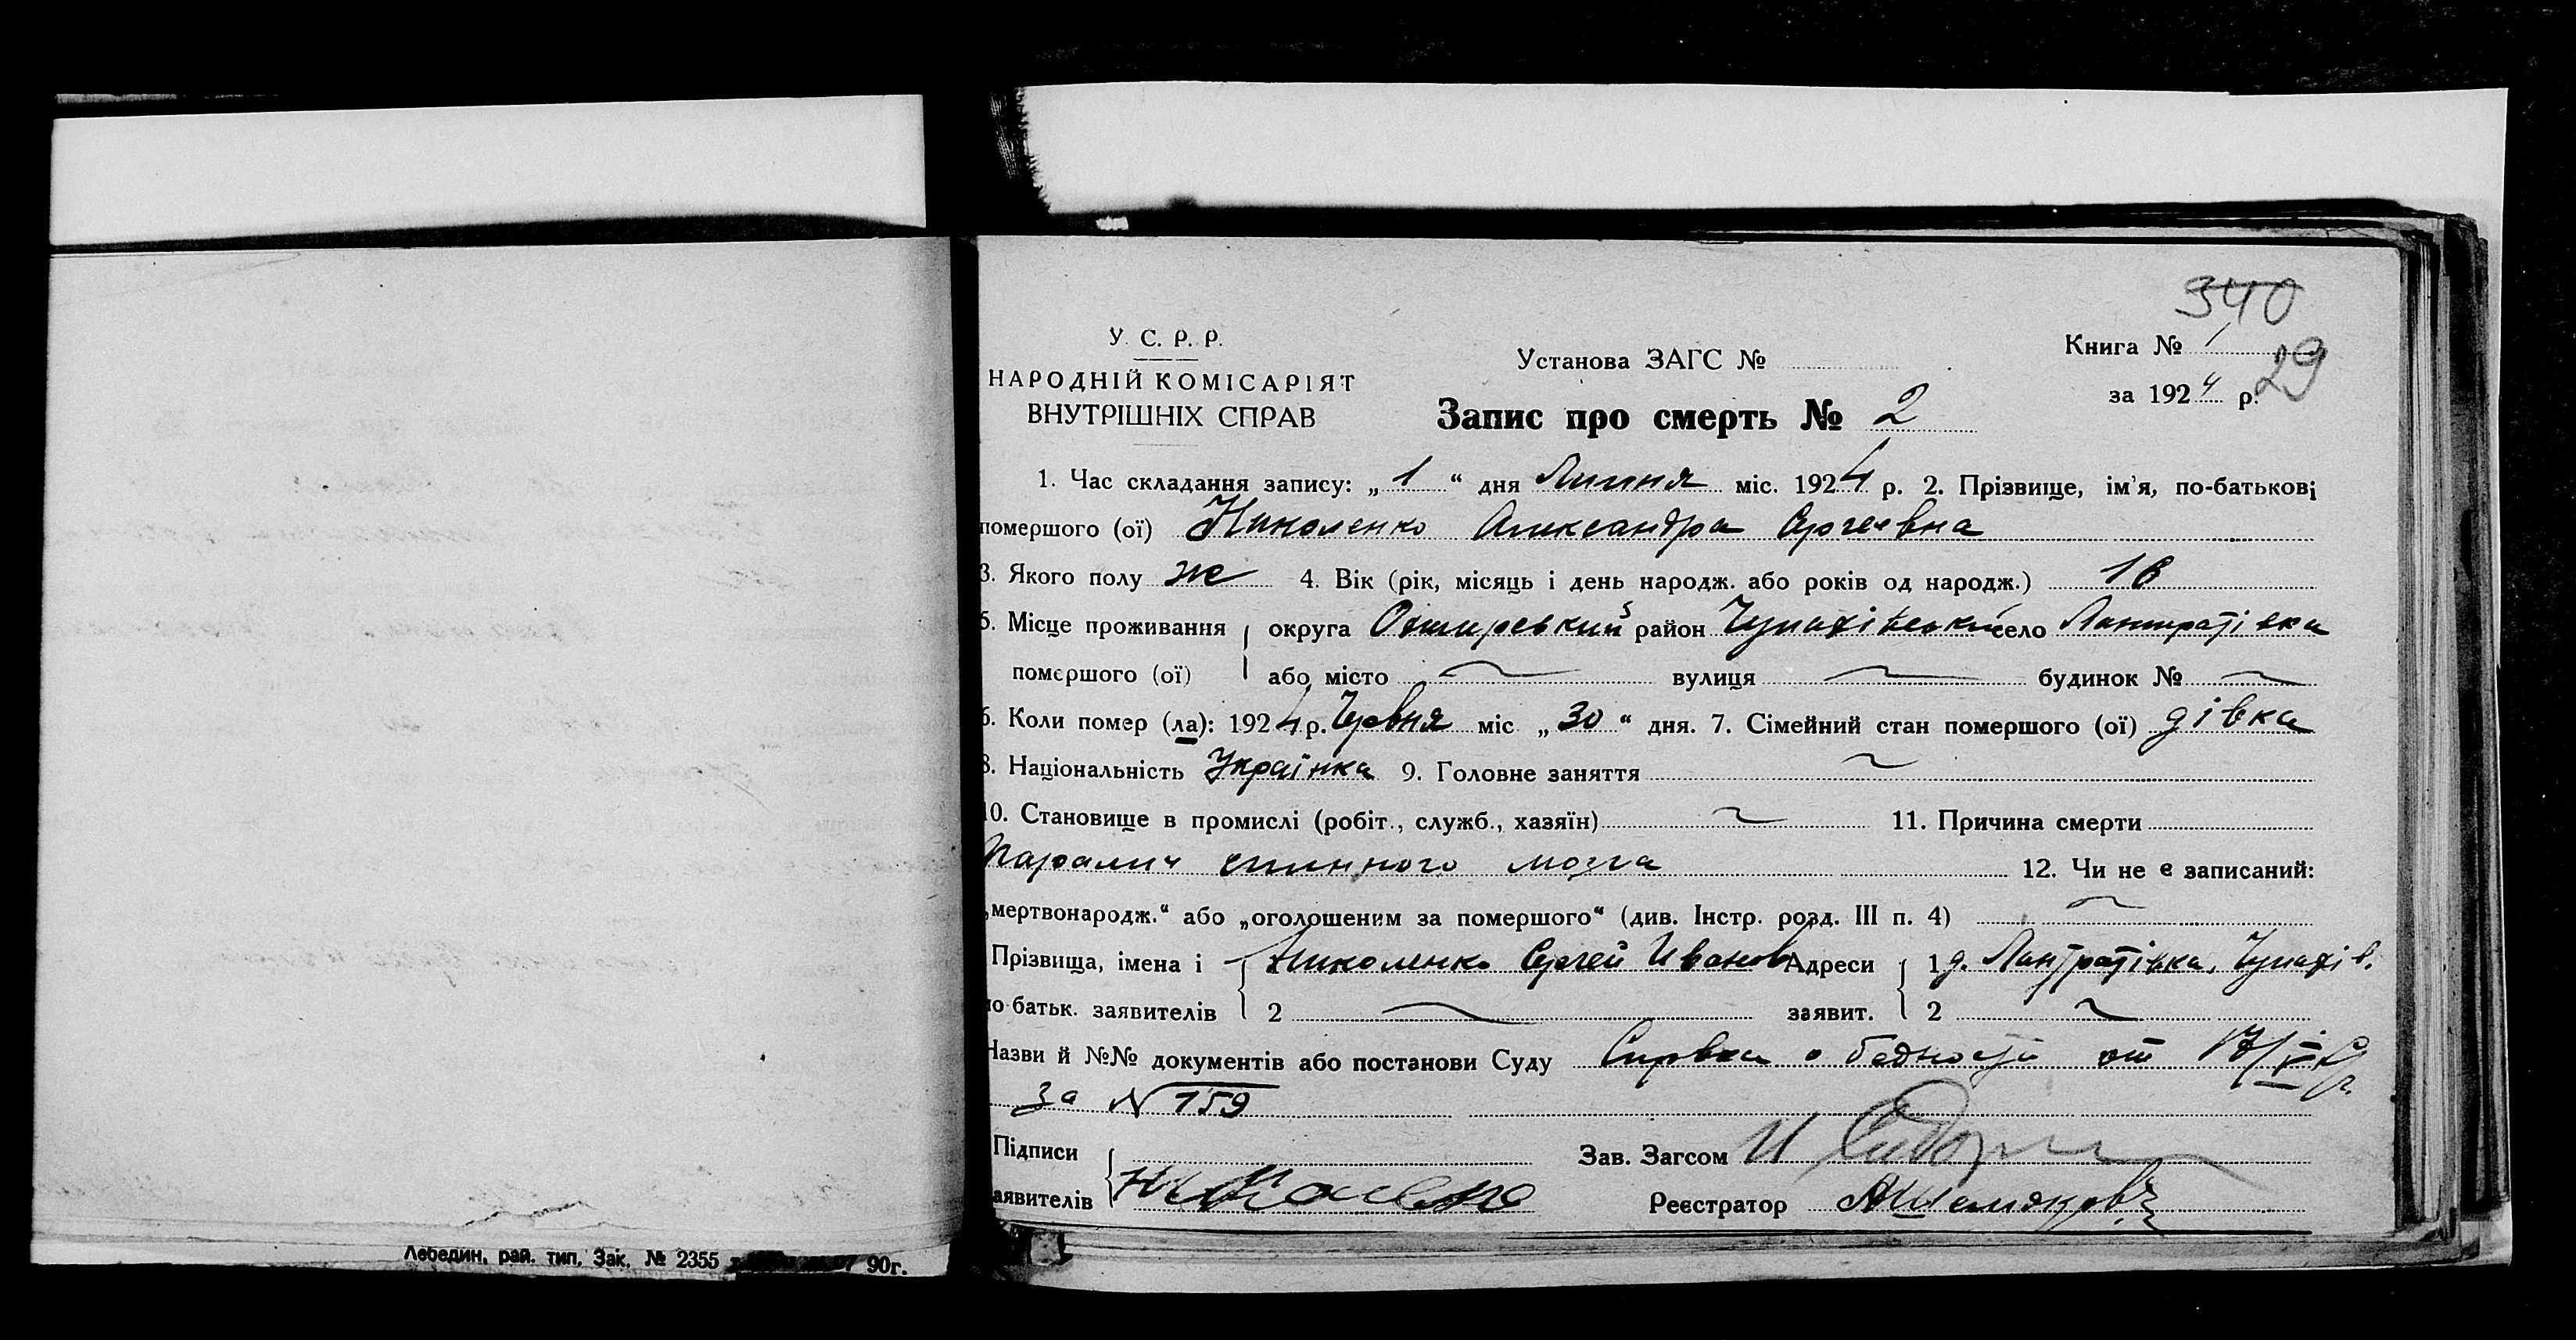 340
У. С. Р. Р.
НАРОДНІЙ КОМІСАРІЯТ
ВНУТРІШНІХ СПРАВ
Установа ЗАГС №
Книга № 1
29
за 1924 р.
Запис про смерть № 2
1. Час складання запису: „ 1 “ дня Липня міс. 1924 р. 2. Прізвище, ім'я, по-батькові
помершого (ої) Николенко Александра Сергеевна
3. Якого полу же 4. Вік (рік, місяць і день народж. або років од народж.) 16
5. Місце проживання округа Охтирський район Чупахівськ село Лантратівка
помершого (ої) або місто вулиця будинок №
6. Коли помер (ла): 1924 р. Червня міс „ 30 “ дня. 7. Сімейний стан помершого (ої) дівка
8. Національність Українка 9. Головне заняття
10. Становище в промислі (робіт., служб., хазяїн) 11. Причина смерти
Паралич спинного мозга 12. Чи не є записаний:
„мертвонародж.“ або „оголошеним за помершого“ (див. Інстр. розд. III п. 4)
Прізвища, імена і Николенко Сергей Иванов Адреси 1 д. Лантратівка, Чупахів.
по батьк. заявителів 2 заявит. 2
Назви й №№ документів або постанови Суду Справка о бедности от 17/
за N 159
Підписи Зав. Загсом И
заявителів Николенко Реєстратор
Лебедин, рай. тип, Зак. № 2355 90г.